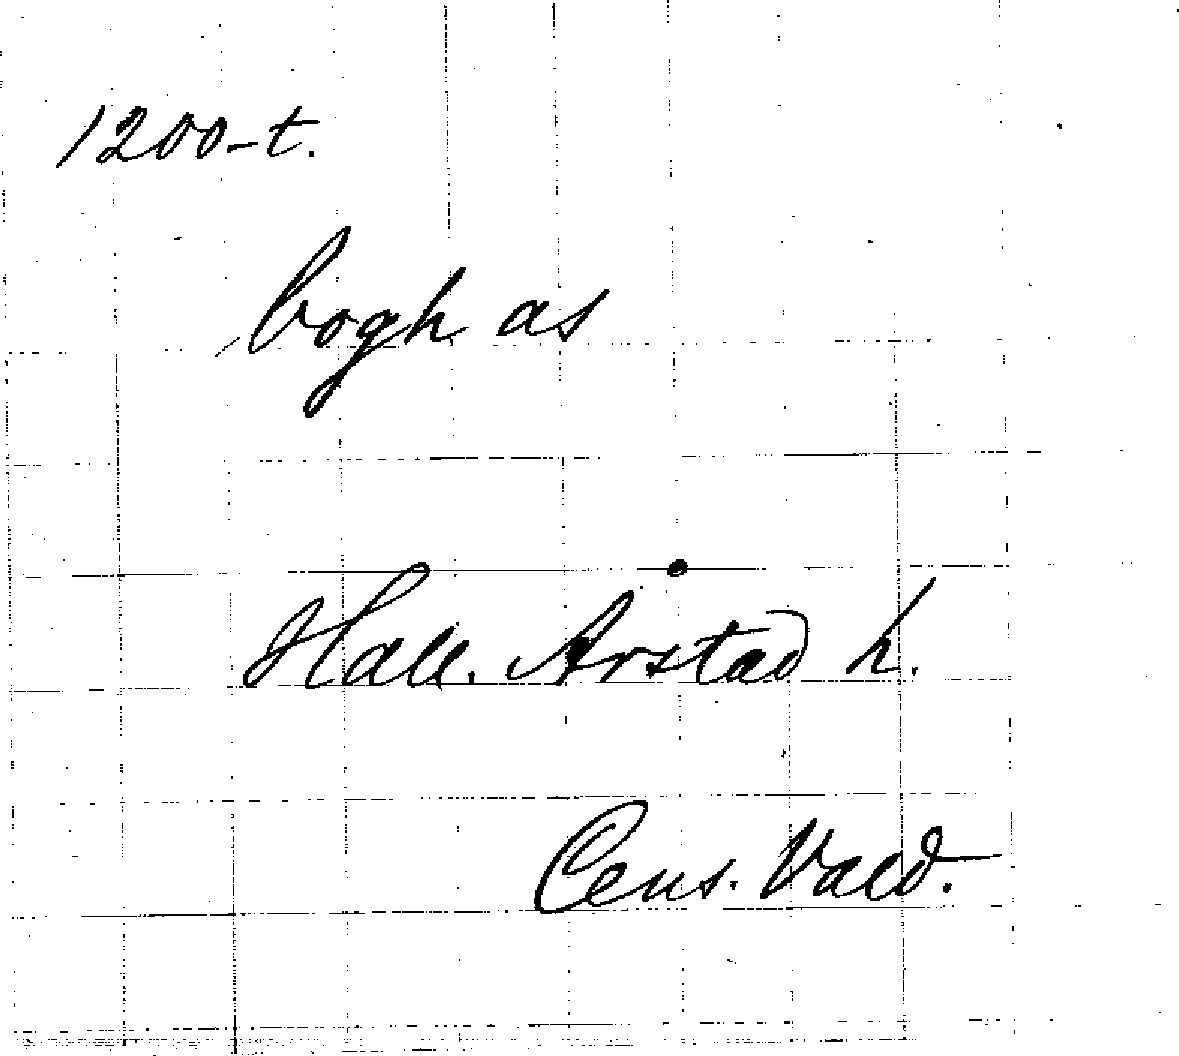 1200-t.
bogh as
Hall. Årstad h.
Cens. Vald.